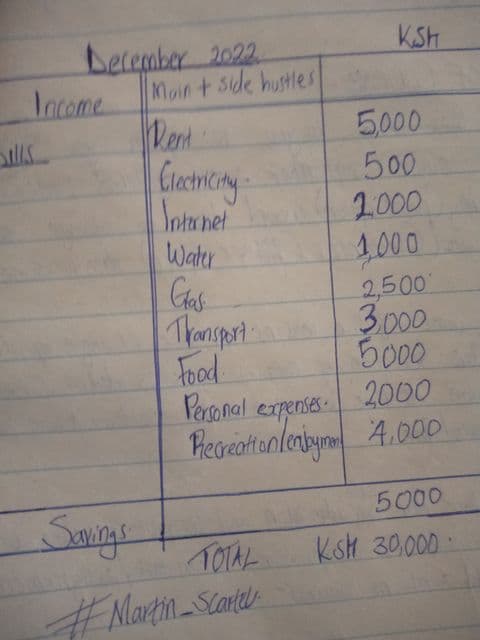 KSH
December 2022
Income Main + side hustles
Rent 5,000
Electricity 500
Internet 2,000
Water 1,000
Gas 2,500
Transport 3,000
Food 5000
Personal expenses 2000
Recreation/enjoyment 4,000
Savings 5000
TOTAL KSH 30,000